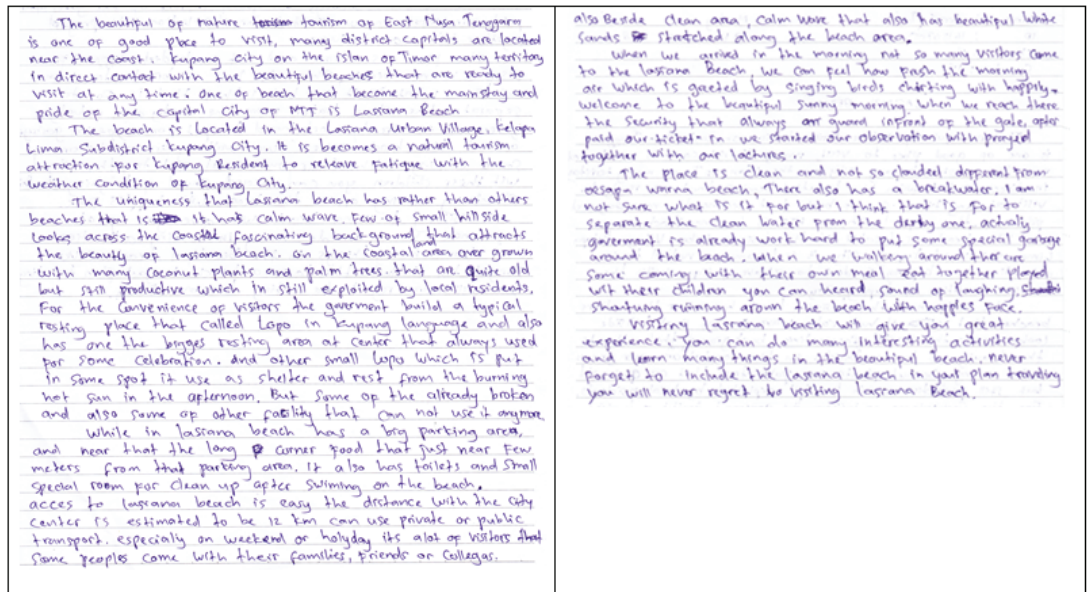 The beautiful of nature tourism of East Nusa Tenggara
is one of good place to visit, many district capitals are located
near the coast. Kupang City on the islan of Timor many territory
in direct contact with the beautiful beaches that are ready to
visit at any time. one of beach that become the mainstay and
pride of the capital City of NTT is Lasiana Beach
The beach is Located in the Lasiana Urban Village, Kelapa
Lima Subdistrict Kupang City. it is becomes a natural tourism
attraction for Kupang Resident to releave Fatique with the
weather condition of Kupang City.
The uniqueness that Lasiana beach has rather than others
beaches that is it has calm wave. Few of small hillside
Looks across the Coastal fascinating background that attracts
the beauty of lasiana beach. on the coastal land area over grown
with many Coconut plants and palm trees. that are quite old
but still productive which in still exploited by local residents.
For the Convenience of visitors the goverment build a typical
resting place that called Lopo in Kupang language and also
has one the bigges resting area at center that always used
for some celebration. And other small Lopo which is put
in some spot it use as shelter and rest from the burning
hot sun in the afternoon. But some of the already broken
and also some of other facility that can not use it anymore
While in lasiana beach has a big parking area,
and near that the long corner food that just near few
meters from that parking area. it also has toilets and small
special room for clean up after swiming on the beach.
acces to lasiana beach is easy the distance with the city
center is estimated to be 12 km can use private or public
transport. especialy on weekend or holyday its alot of visitors that
some peoples come with their families, friends or Collegas.
also Beside clean area, calm wave that also has beautiful white
sands stretched along the beach area.
When we arrived in the morning not so many visitors come
to the lasiana Beach, we can feel how fresh the morning
air which is gaeted by singing birds chirting with happily.
welcome to the beautiful sunny morning. when we reach there
the security that always guard infront of the gate, after
paid our ticket in we started our observation with prayed
together with our lactures.
The place is clean and not so clauded different from
oesapa warna beach. There also has a breakwater, I am
not sure what is it for but I think that is for to
separate the clean water from the derty one, actualy
goverment is already work hard to put some special garbage
around the beach. when we walking around ther are
some coming with their own meal eat together played
wit their children you can heard sound of laughing,
shautung running aroun the beach with happles face.
Visiting lasiana beach will give you great
experience. you can do many interesting activities
and learn many things in the beautiful beach. never
forget to include the lasiana beach in your plan traveling
you will never regret to visiting Lasiana Beach.